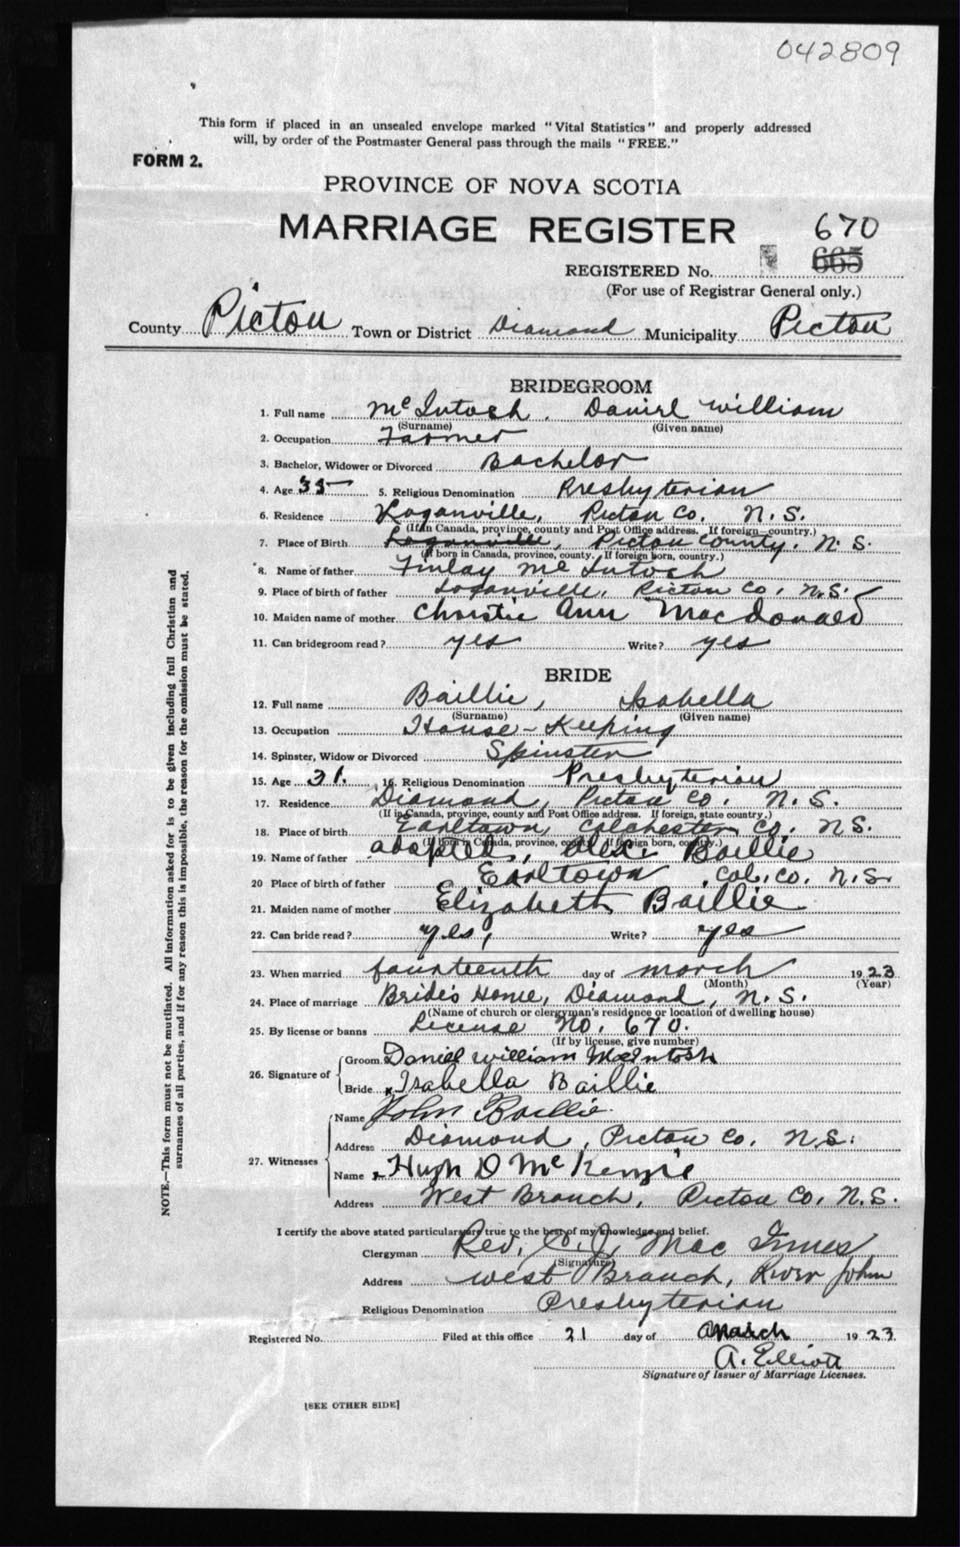 042809
This form if placed in an unsealed envelope marked "Vital Statistics" and properly addressed
will, by order of the Postmaster General pass through the mails "FREE."
FORM 2.
PROVINCE OF NOVA SCOTIA
MARRIAGE REGISTER 670
REGISTERED No. 665
(For use of Registrar General only.)
County Pictou Town or District Diamond Municipality Pictou
BRIDEGROOM
1. Full name McIntosh. Daniel William
(Surname) (Given name)
2. Occupation Farmer
3. Bachelor, Widower or Divorced Bachelor
4. Age 35 5. Religious Denomination Presbyterian
6. Residence Loganville, Pictou Co. N.S.
(If in Canada, province, county and Post Office address. If foreign, country.)
7. Place of Birth Loganville, Pictou County, N.S.
(If born in Canada, province, county, If foreign born, country.)
8. Name of father Finlay McIntosh
9. Place of birth of father Loganville, Pictou Co, N.S.
10. Maiden name of mother Christie Ann MacDonald
11. Can bridegroom read? yes Write? yes
BRIDE
12. Full name Baillie, Isabella
(Surname) (Given name)
13. Occupation House-Keeping
14. Spinster, Widow or Divorced Spinster
15. Age 31. 16. Religious Denomination Presbyterian
17. Residence Diamond, Pictou Co. N.S.
(If in Canada, province, county and Post Office address. If foreign, state country.)
18. Place of birth Earltown, Colchester Co. N.S.
(If born in Canada, province, county. If foreign born, country.)
19. Name of father adopted, Alex Baillie
20 Place of birth of father Earltown, Col. Co. N.S.
21. Maiden name of mother Elizabeth Baillie
22. Can bride read? yes, Write? yes
23. When married fourteenth day of March 1923
(Month) (Year)
24. Place of marriage Bride's Home, Diamond, N.S.
(Name of church or clergyman's residence or location of dwelling house)
25. By license or banns License No. 670.
(If by license, give number)
26. Signature of Groom Daniel William McIntosh
Bride x Isabella Baillie
27. Witnesses Name John Baillie
Address Diamond, Pictou Co. N.S.
Name x Hugh D McKenzie
Address West Branch, Pictou Co, N.S.
I certify the above stated particulars are true to the best of my knowledge and belief.
Clergyman Rev. C.J. MacInnes
(Signature)
Address West Branch, River John
Religious Denomination Presbyterian
Registered No. Filed at this office 21 day of March 1923
A. Elliott
Signature of Issuer of Marriage Licenses.
[SEE OTHER SIDE]
NOTE.—This form must not be mutilated. All information asked for is to be given including full Christian and
surnames of all parties, and if for any reason this is impossible, the reason for the omission must be stated.